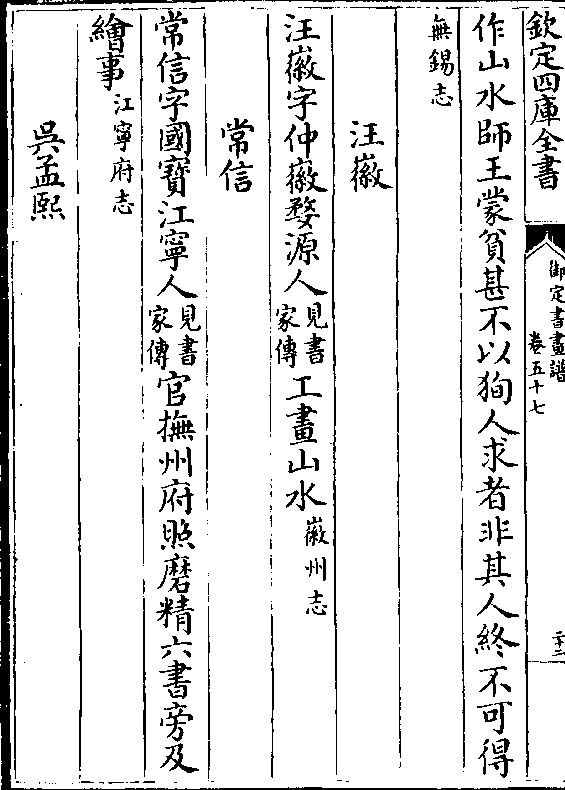 欽定四庫全書
御定書畫譜
卷五十七
二十二
作山水師王蒙貧甚不以狥人求者非其人終不可得
無錫志
汪徽
汪徽字仲徽婺源人見書家傳工畫山水徽州志
常信
常信字國寶江寧人見書家傳官撫州府照磨精六書旁及
繪事江寧府志
吳孟熙